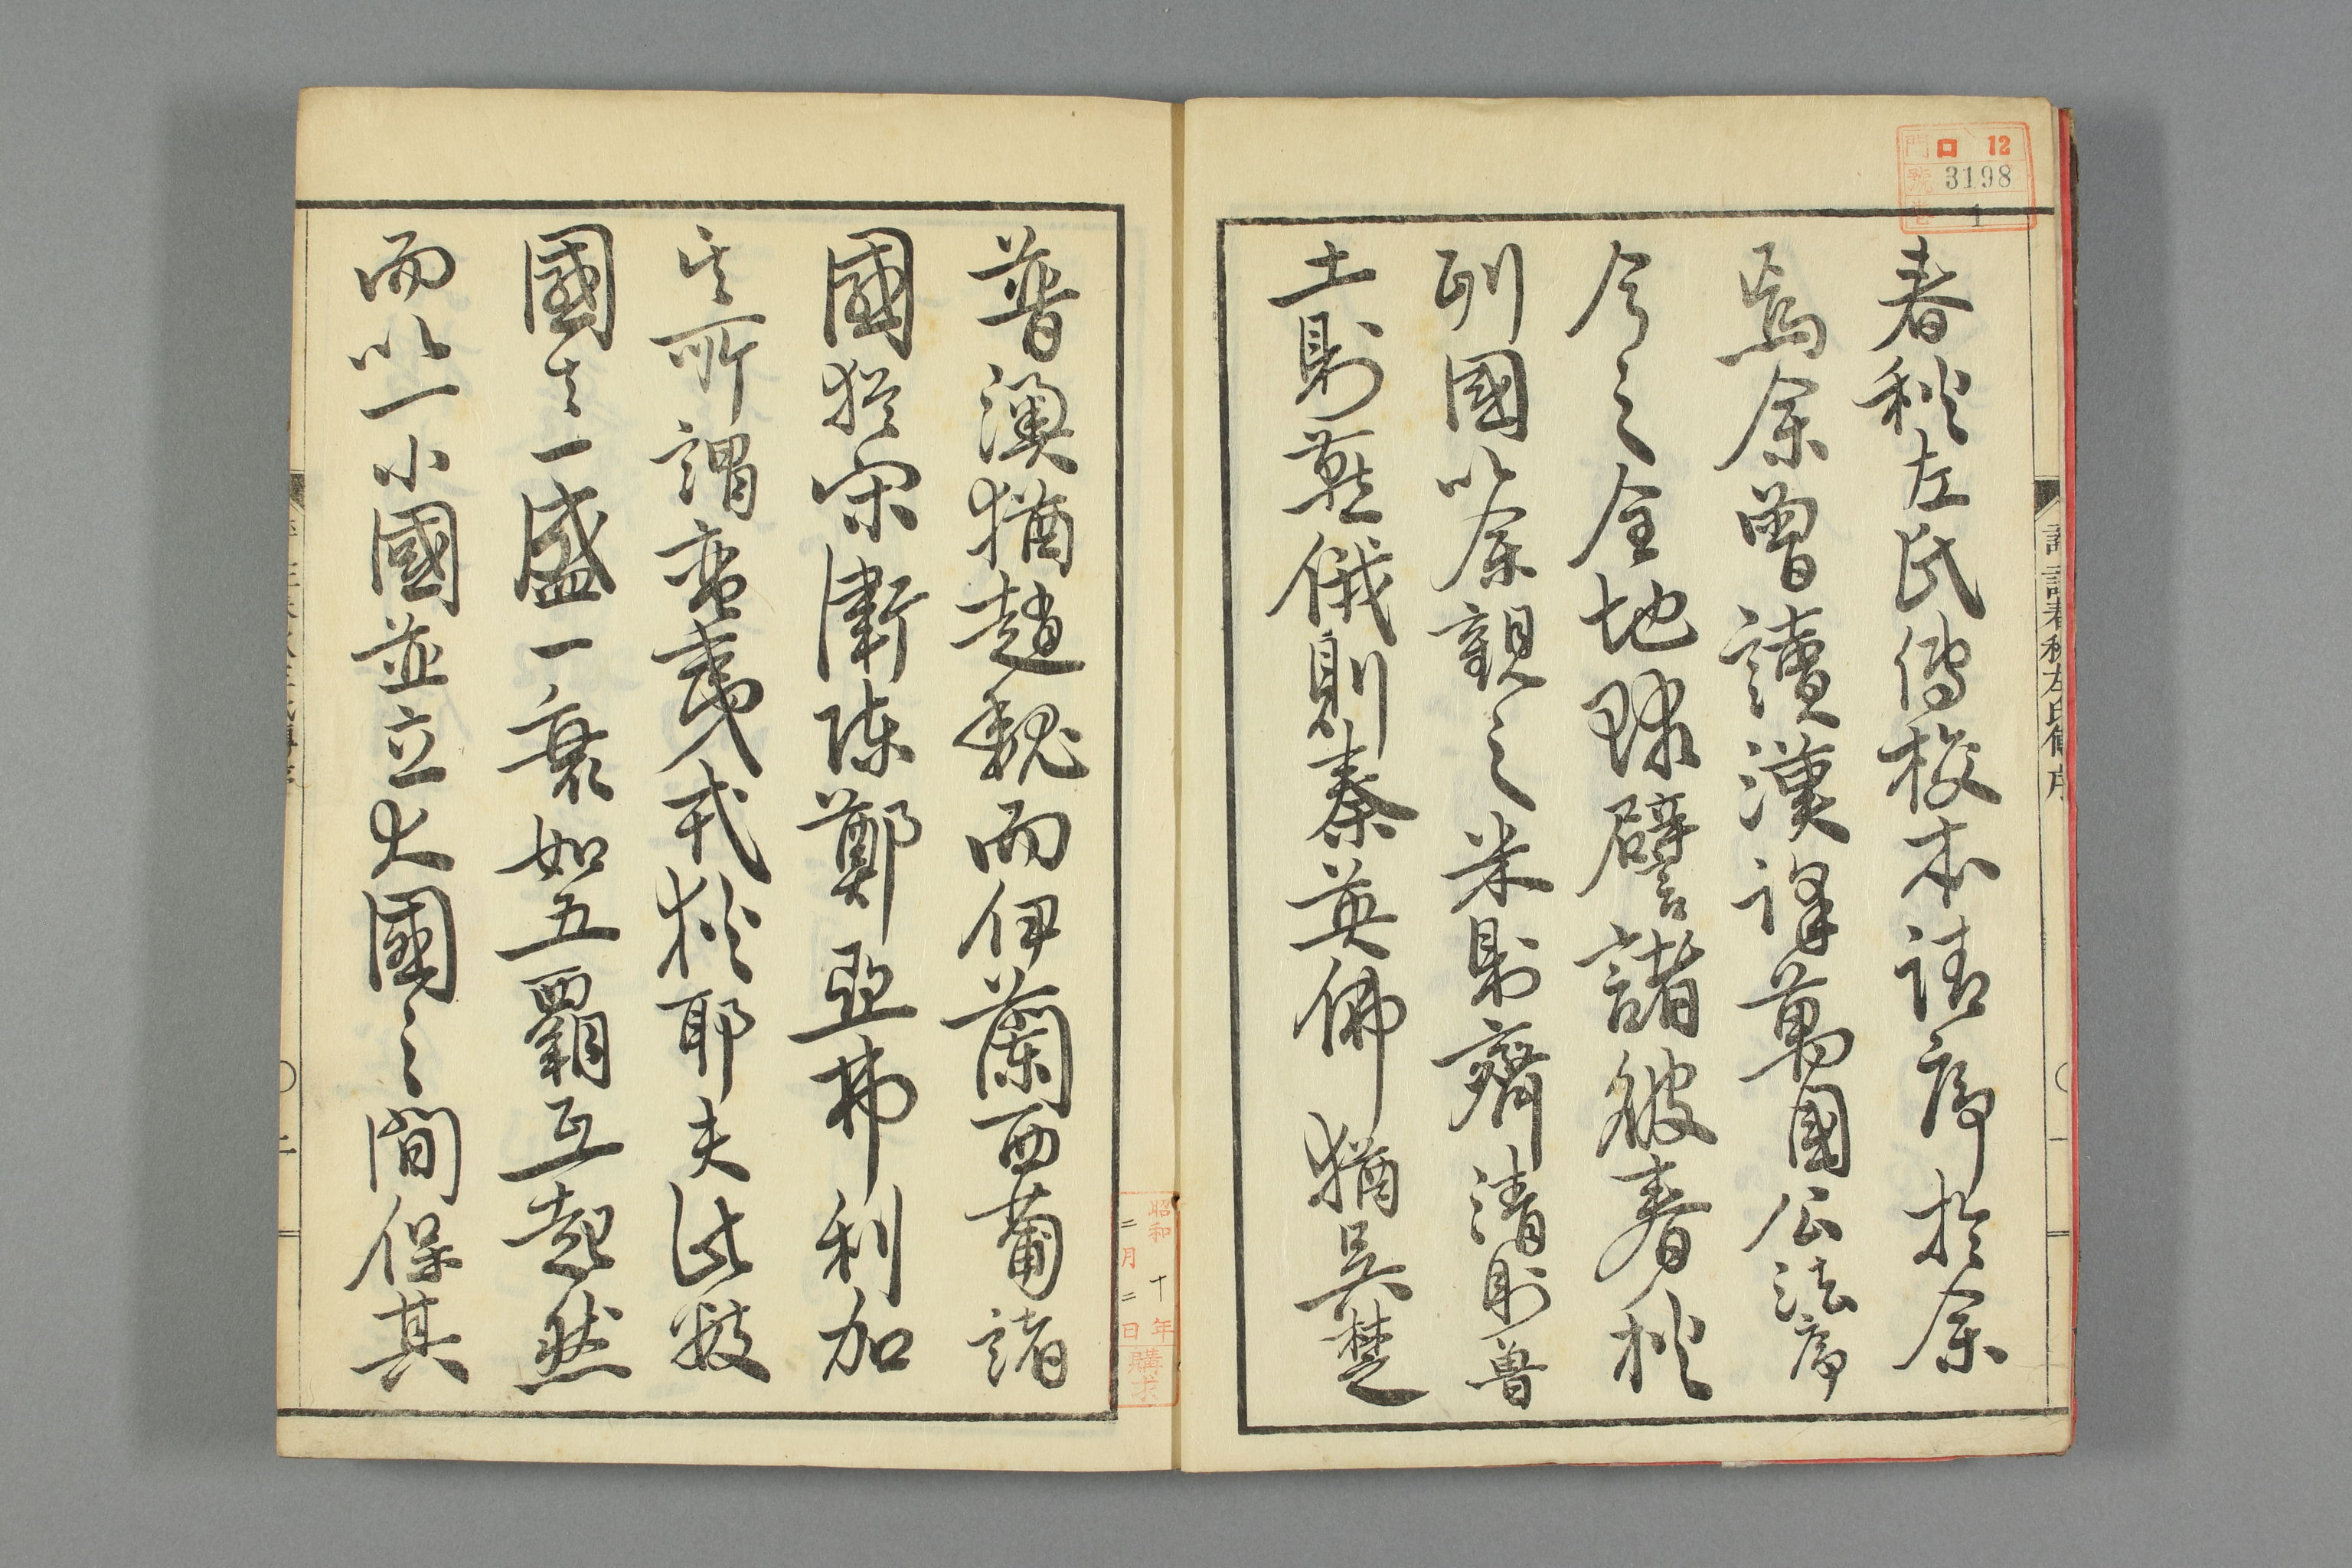 門 ロ 12
號 3198
卷 1
春秋左氏傳校本請序於余
焉余曾讀漢譯萬國公法序
今之全地球譬諸彼春秋
列國以余觀之米則齊清則魯
土則燕俄則秦英佛猶吳楚
昭和十年
二月二日
購求
普澳猶趙魏而伊蘭西葡諸
國猶宋衛陳鄭亞弗利加
其所謂蠻夷戎狄耶夫此數
國者一盛一衰如五霸互起然
而以一小國並立大國之間保其